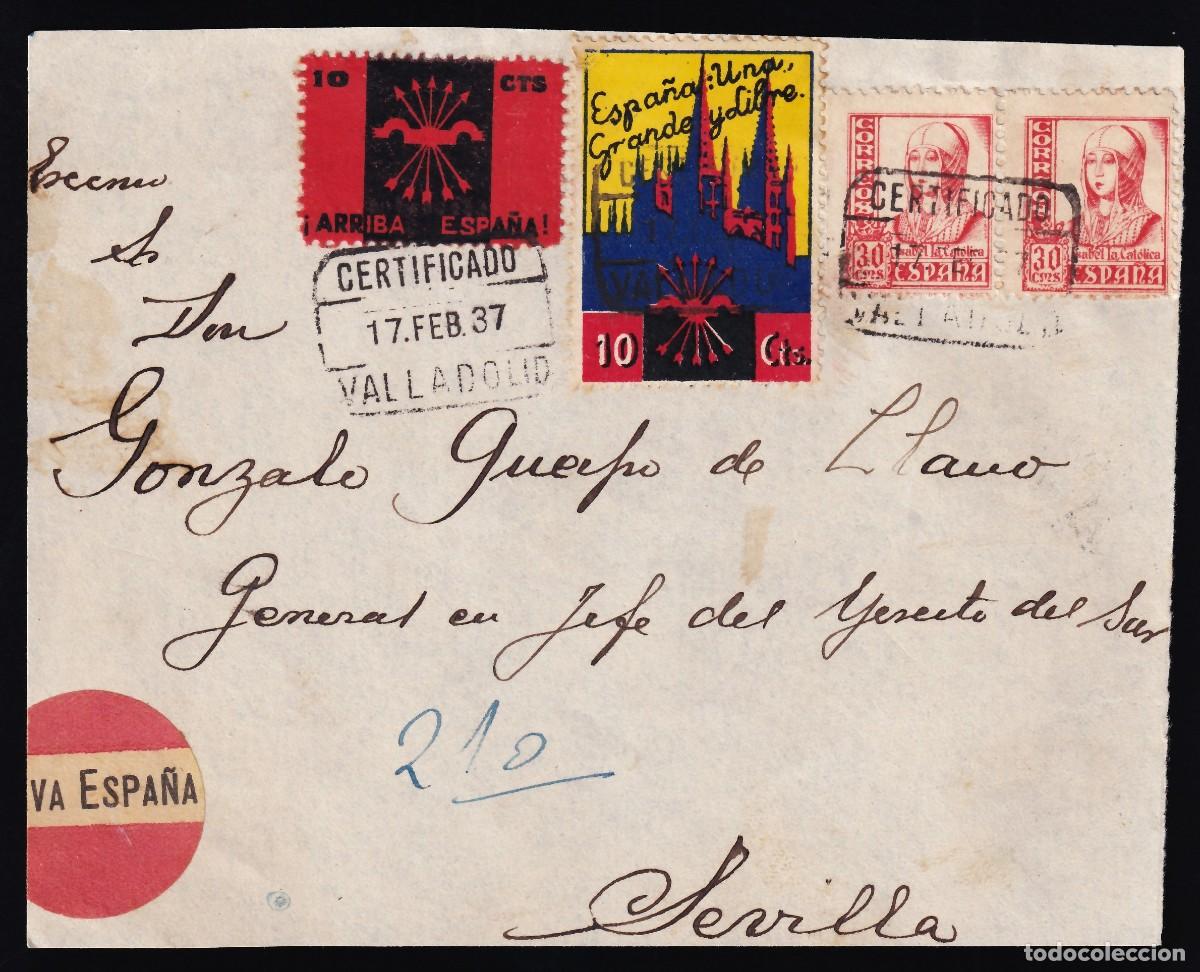 10 CTS
¡ARRIBA ESPAÑA!
España: Una,
Grande y Libre.
10 Cts.
CORREOS
30 CTMS
Isabel la Católica
ESPAÑA
CORREOS
30 CTMS
Isabel la Católica
ESPAÑA
CERTIFICADO
17. FEB. 37
VALLADOLID
CERTIFICADO
17
VALLADOLID
CERTIFICADO
17 FEB 37
VALLADOLID
Excemo
Sr
Don
Gonzalo Queipo de Llano
General en Jefe del Yercito del Sur
210
VA ESPAÑA
Sevilla
todocoleccion